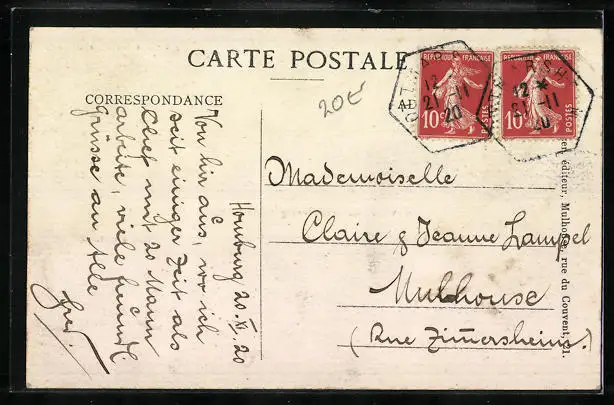 CARTE POSTALE
CORRESPONDANCE
AD
20€
REPUBLIQUE FRANÇAISE
10c
POSTES
REPUBLIQUE FRANÇAISE
10c
POSTES
12
21-11
20
12 *
21-11
20
Homburg 20.XI.20
Von hier aus, wo ich
seit einiger Zeit als
Chef mit 20 Mann
arbeite, viele freundl
Grüsse an Alle
Mademoiselle
Claire & Jeanne Lampel
Mulhouse
(Rue Zimmersheim.)
éditeur, Mulhouse, rue du Couvent, 21.